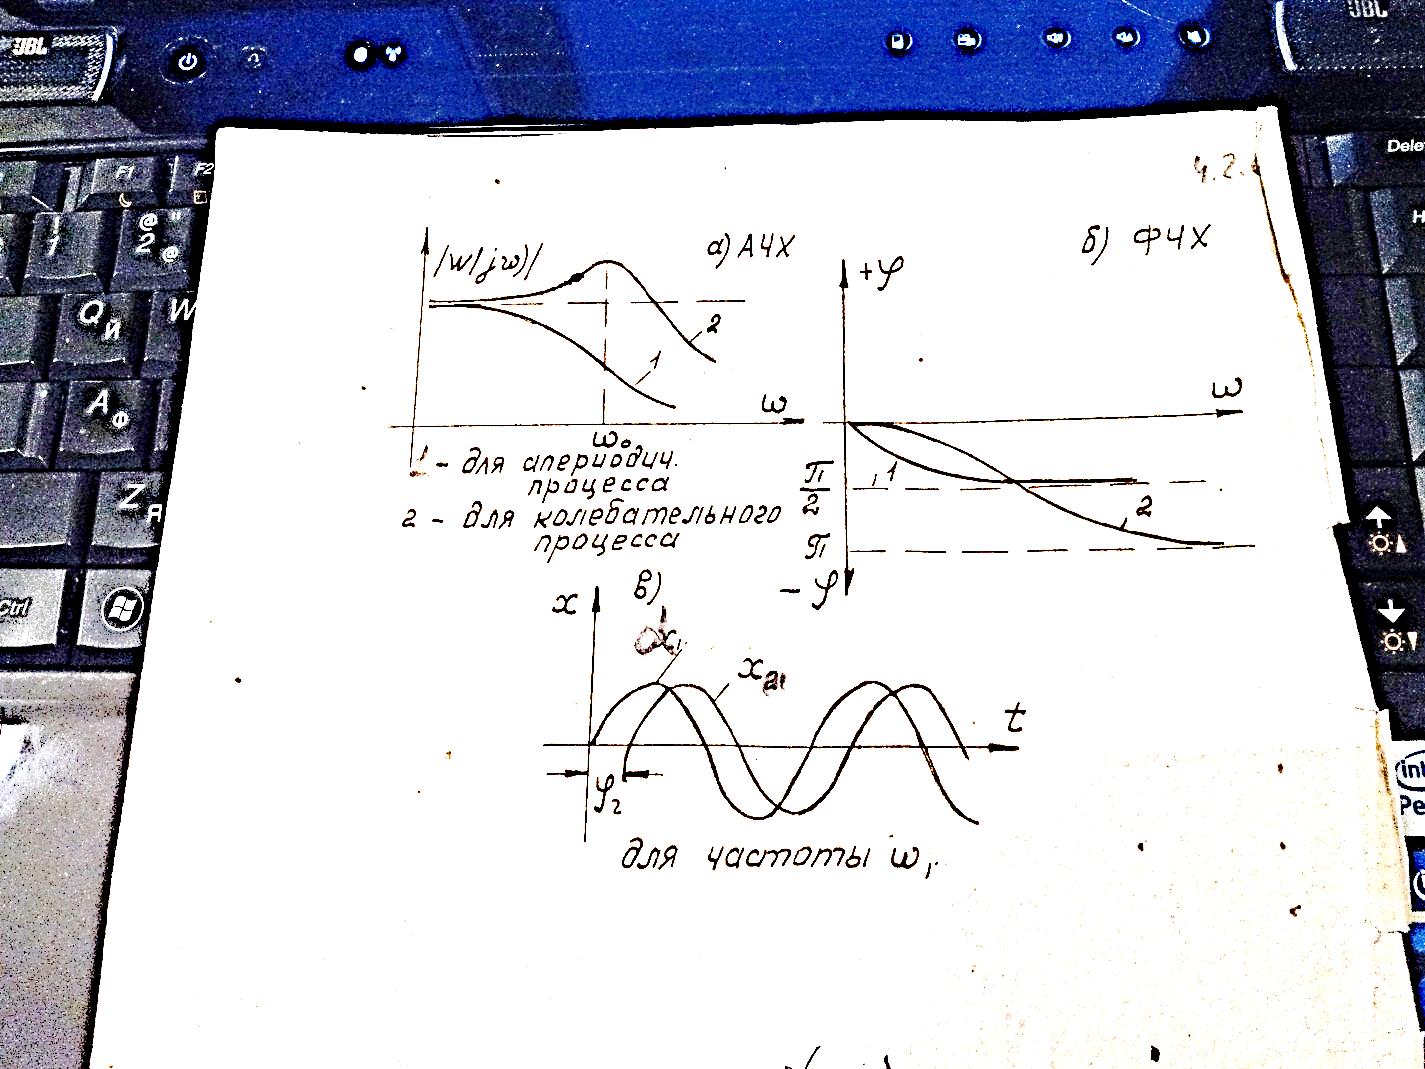 JBL
JBL
F1
F2
Delete
! 1
@ " 2 @
Q Й
W
A Ф
Z Я
Ctrl
4.2.
а) АЧХ
|W(jω)|
2
1
ω
ω₀
1 - для апериодич.
процесса
2 - для колебательного
процесса
б) ФЧХ
+φ
ω
π/2
1
2
π
- φ
в)
x
x₁
x₂₁
t
φ₂
для частоты ω₁